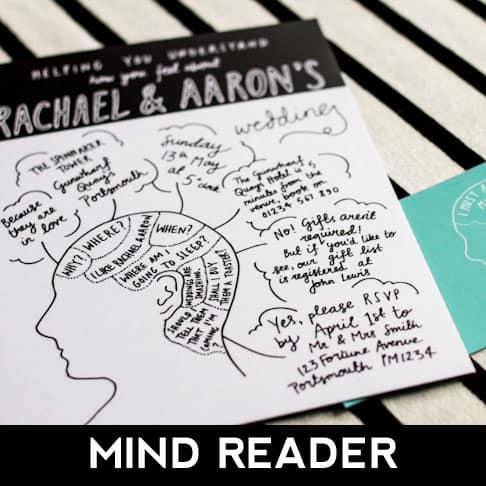 HELPING YOU UNDERSTAND
how you feel about
RACHAEL & AARON'S
wedding
THE SPINNAKER
TOWER
Gunwharf
Quays
Portsmouth
Sunday
13th May
at 5
The Gunwharf
Quays Hotel is 5
minutes from the
venue, book on
01234 567 890
Because
they are
in love
No! Gifts aren't
required!
But if you'd like to
see, our gift list
is registered at
John Lewis
Yes, please RSVP
by April 1st to
Mr & Mrs Smith
123 Fortune Avenue
Portsmouth PM1234
WHY?
WHERE?
WHEN?
I LIKE RACHAEL & AARON
WHERE AM I
GOING TO SLEEP?
WEDDINGS ARE
AMAZING
SHALL I BUY
THEM A TOASTER?
SHOULD I
TELL THEM
THAT I'M
COMING?
I MUST
MIND READER